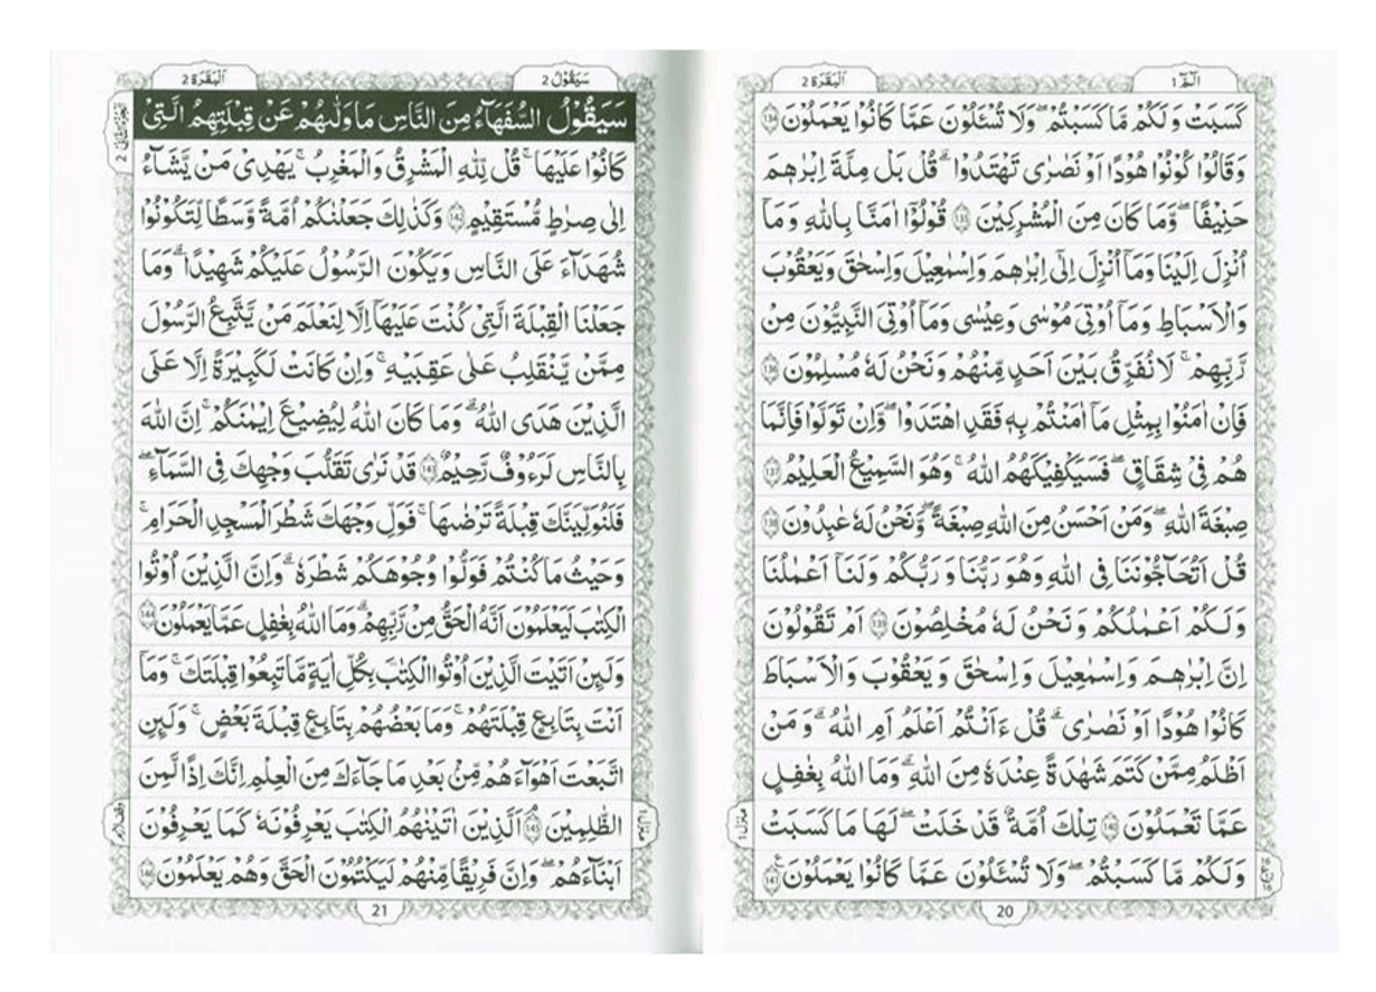 الٓمّٓ 1
اَلْبَقَرَة 2
كَسَبَتْ وَ لَكُمْ مَّا كَسَبْتُمْ ۖ وَلَا تُسْـَٔلُوْنَ عَمَّا كَانُوْا يَعْمَلُوْنَ ﴿134﴾
وَقَالُوْا كُوْنُوْا هُوْدًا اَوْ نَصٰرٰى تَهْتَدُوْا ۗ قُلْ بَلْ مِلَّةَ اِبْرٰهٖمَ
حَنِيْفًا ۖ وَّمَا كَانَ مِنَ الْمُشْرِكِيْنَ ﴿135﴾ قُوْلُوْٓا اٰمَنَّا بِاللّٰهِ وَ مَآ
اُنْزِلَ اِلَيْنَا وَمَآ اُنْزِلَ اِلٰٓى اِبْرٰهٖمَ وَاِسْمٰعِيْلَ وَاِسْحٰقَ وَيَعْقُوْبَ
وَالْاَسْبَاطِ وَمَآ اُوْتِيَ مُوْسٰى وَعِيْسٰى وَمَآ اُوْتِيَ النَّبِيُّوْنَ مِنْ
رَّبِّهِمْ ۚ لَا نُفَرِّقُ بَيْنَ اَحَدٍ مِّنْهُمْ وَنَحْنُ لَهٗ مُسْلِمُوْنَ ﴿136﴾
فَاِنْ اٰمَنُوْا بِمِثْلِ مَآ اٰمَنْتُمْ بِهٖ فَقَدِ اهْتَدَوْا ۖ وَّاِنْ تَوَلَّوْا فَاِنَّمَا
هُمْ فِيْ شِقَاقٍ ۖ فَسَيَكْفِيْكَهُمُ اللّٰهُ ۚ وَهُوَ السَّمِيْعُ الْعَلِيْمُ ﴿137﴾
صِبْغَةَ اللّٰهِ ۖ وَمَنْ اَحْسَنُ مِنَ اللّٰهِ صِبْغَةً ۖ وَّنَحْنُ لَهٗ عٰبِدُوْنَ ﴿138﴾
قُلْ اَتُحَآجُّوْنَنَا فِي اللّٰهِ وَهُوَ رَبُّنَا وَ رَبُّكُمْ وَلَنَآ اَعْمٰلُنَا
وَلَكُمْ اَعْمٰلُكُمْ وَ نَحْنُ لَهٗ مُخْلِصُوْنَ ﴿139﴾ اَمْ تَقُوْلُوْنَ
اِنَّ اِبْرٰهٖمَ وَاِسْمٰعِيْلَ وَاِسْحٰقَ وَ يَعْقُوْبَ وَالْاَسْبَاطَ
كَانُوْا هُوْدًا اَوْ نَصٰرٰى ۗ قُلْ ءَاَنْتُمْ اَعْلَمُ اَمِ اللّٰهُ ۗ وَ مَنْ
اَظْلَمُ مِمَّنْ كَتَمَ شَهٰدَةً عِنْدَهٗ مِنَ اللّٰهِ ۗ وَمَا اللّٰهُ بِغٰفِلٍ
عَمَّا تَعْمَلُوْنَ ﴿140﴾ تِلْكَ اُمَّةٌ قَدْ خَلَتْ ۖ لَهَا مَا كَسَبَتْ
وَلَكُمْ مَّا كَسَبْتُمْ ۖ وَلَا تُسْـَٔلُوْنَ عَمَّا كَانُوْا يَعْمَلُوْنَ ﴿141﴾
مَنْزِل 1
20
سَيَقُوْلُ 2
اَلْبَقَرَة 2
سَيَقُوْلُ السُّفَهَآءُ مِنَ النَّاسِ مَا وَلّٰىهُمْ عَنْ قِبْلَتِهِمُ الَّتِيْ
كَانُوْا عَلَيْهَا ۚ قُلْ لِّلّٰهِ الْمَشْرِقُ وَالْمَغْرِبُ ۚ يَهْدِيْ مَنْ يَّشَآءُ
اِلٰى صِرٰطٍ مُّسْتَقِيْمٍ ﴿142﴾ وَكَذٰلِكَ جَعَلْنٰكُمْ اُمَّةً وَّسَطًا لِّتَكُوْنُوْا
شُهَدَآءَ عَلَى النَّاسِ وَيَكُوْنَ الرَّسُوْلُ عَلَيْكُمْ شَهِيْدًا ۗ وَمَا
جَعَلْنَا الْقِبْلَةَ الَّتِيْ كُنْتَ عَلَيْهَآ اِلَّا لِنَعْلَمَ مَنْ يَّتَّبِعُ الرَّسُوْلَ
مِمَّنْ يَّنْقَلِبُ عَلٰى عَقِبَيْهِ ۚ وَاِنْ كَانَتْ لَكَبِيْرَةً اِلَّا عَلَى
الَّذِيْنَ هَدَى اللّٰهُ ۗ وَمَا كَانَ اللّٰهُ لِيُضِيْعَ اِيْمٰنَكُمْ ۚ اِنَّ اللّٰهَ
بِالنَّاسِ لَرَءُوْفٌ رَّحِيْمٌ ﴿143﴾ قَدْ نَرٰى تَقَلُّبَ وَجْهِكَ فِي السَّمَآءِ ۖ
فَلَنُوَلِّيَنَّكَ قِبْلَةً تَرْضٰىهَا ۚ فَوَلِّ وَجْهَكَ شَطْرَ الْمَسْجِدِ الْحَرَامِ ۚ
وَحَيْثُ مَا كُنْتُمْ فَوَلُّوْا وُجُوْهَكُمْ شَطْرَهٗ ۗ وَاِنَّ الَّذِيْنَ اُوْتُوا
الْكِتٰبَ لَيَعْلَمُوْنَ اَنَّهُ الْحَقُّ مِنْ رَّبِّهِمْ ۗ وَمَا اللّٰهُ بِغٰفِلٍ عَمَّا يَعْمَلُوْنَ ﴿144﴾
وَلَئِنْ اَتَيْتَ الَّذِيْنَ اُوْتُوا الْكِتٰبَ بِكُلِّ اٰيَةٍ مَّا تَبِعُوْا قِبْلَتَكَ ۚ وَمَآ
اَنْتَ بِتَابِعٍ قِبْلَتَهُمْ ۚ وَمَا بَعْضُهُمْ بِتَابِعٍ قِبْلَةَ بَعْضٍ ۚ وَلَئِنِ
اتَّبَعْتَ اَهْوَآءَهُمْ مِّنْ بَعْدِ مَا جَآءَكَ مِنَ الْعِلْمِ اِنَّكَ اِذًا لَّمِنَ
الظّٰلِمِيْنَ ﴿145﴾ اَلَّذِيْنَ اٰتَيْنٰهُمُ الْكِتٰبَ يَعْرِفُوْنَهٗ كَمَا يَعْرِفُوْنَ
اَبْنَآءَهُمْ ۖ وَاِنَّ فَرِيْقًا مِّنْهُمْ لَيَكْتُمُوْنَ الْحَقَّ وَهُمْ يَعْلَمُوْنَ ﴿146﴾
مَنْزِل 1
21